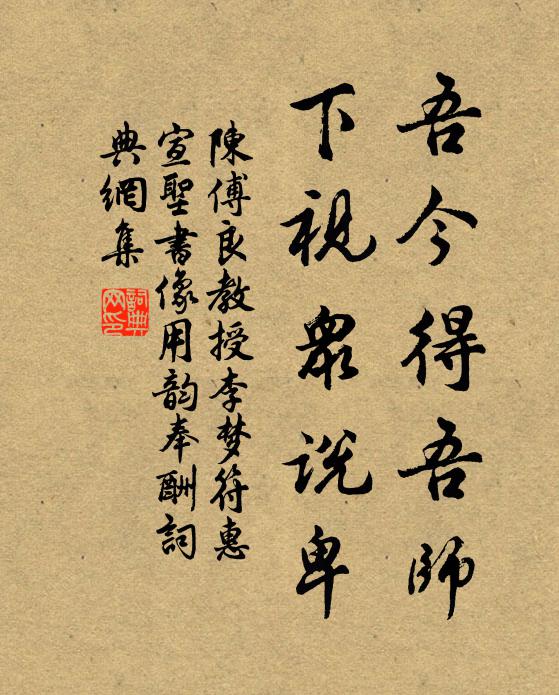 吾今得吾師
下視眾說卑
陳傅良教授李梦符惠
宣聖書像用韵奉酬詞
典網集
詞典
网印